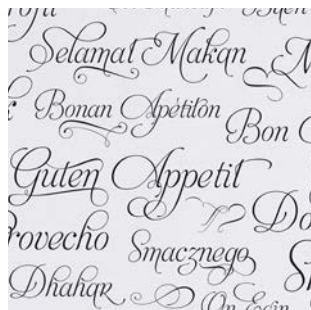 Selamat Makan
Bonan Apétitôn
Bon
Guten Appetit
Do
rovecho
Smacznego
Dhahar